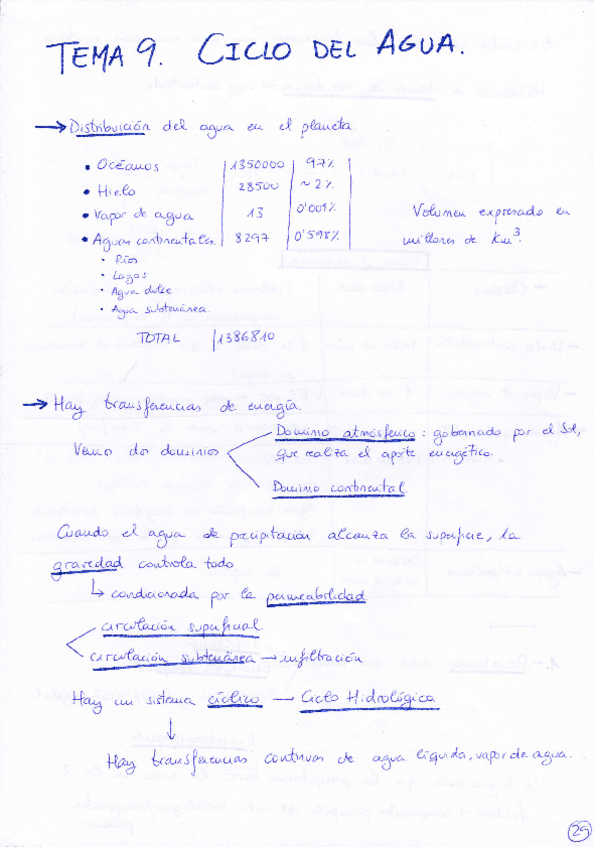 TEMA 9. CICLO DEL AGUA.
→ Distribuición del agua en el planeta
• Océanos 1350000 97%
• Hielo 28500 ~2%
• Vapor de agua 13 0'001%
• Aguas continentales 8297 0'598%
Volumen expresado en
millores de Km³.
· Ríos
· Lagos
· Agua dulce
· Agua subterránea.
TOTAL 1386810
→ Hay transferencias de energía.
Vemos dos dominios
Dominio atmósferico: gobernado por el Sol,
que realiza el aporte energético.
Dominio continental.
Cuando el agua de precipitación alcanza la superficie, la
gravedad controla todo
↳ condicionada por la permeabilidad
circulación superficial.
circulación subterránea → infiltración
Hay un sistema cíclico — Ciclo Hidrológico
↓
Hay transferencias continuas de agua líquida, vapor de agua...
29